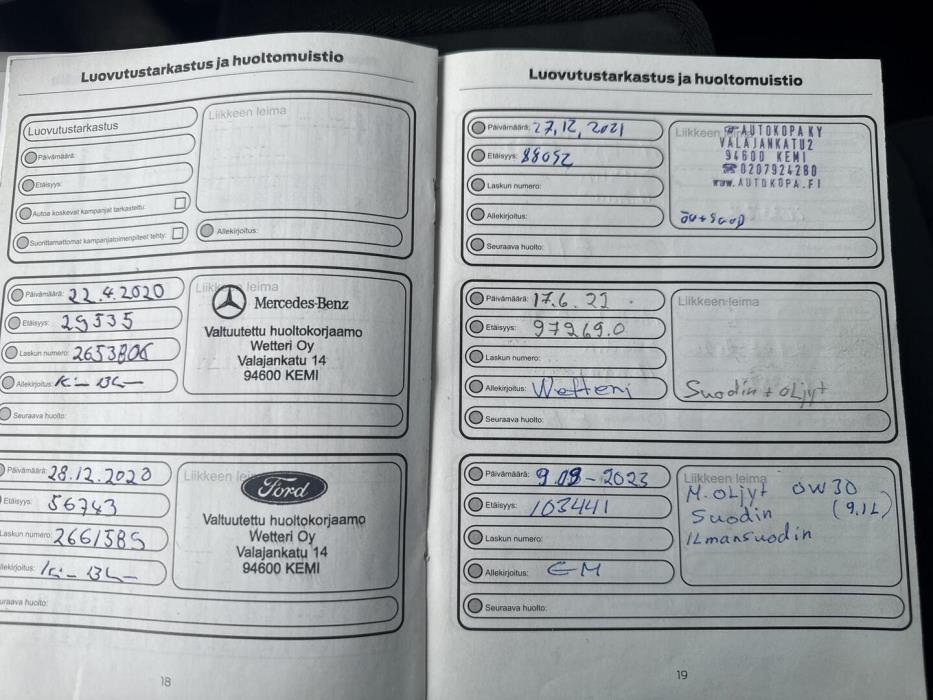 Luovutustarkastus ja huoltomuistio
Luovutustarkastus
Liikkeen leima
Päivämäärä:
Etäisyys:
Autoa koskevat kampanjat tarkastettu:
Suorittamattomat kampanjatoimenpiteet tehty:
Allekirjoitus:
Päivämäärä: 22.4.2020
Etäisyys: 29535
Laskun numero: 2653806
Allekirjoitus:
Seuraava huolto:
Liikkeen leima
Mercedes-Benz
Valtuutettu huoltokorjaamo
Wetteri Oy
Valajankatu 14
94600 KEMI
Päivämäärä: 28.12.2020
Etäisyys: 56743
Laskun numero: 2661585
Allekirjoitus:
Seuraava huolto:
Ford
Valtuutettu huoltokorjaamo
Wetteri Oy
Valajankatu 14
94600 KEMI
18
Luovutustarkastus ja huoltomuistio
Päivämäärä: 27,12,2021
Etäisyys: 88052
Laskun numero:
Allekirjoitus:
Seuraava huolto:
Liikkeen
AUTOKOPA KY
VALAJANKATU2
94600 KEMI
☎0207924280
www.AUTOKOPA.FI
Päivämäärä: 17.6.22
Etäisyys: 97269.0
Laskun numero:
Allekirjoitus: Wetteri
Seuraava huolto:
Liikkeen leima
Suodin + öljyt
Päivämäärä: 9.09-2023
Etäisyys: 103441
Laskun numero:
Allekirjoitus: EM
Seuraava huolto:
Liikkeen leima
M.öljyt 0W30
Suodin (9,1L)
ilmansuodin
19